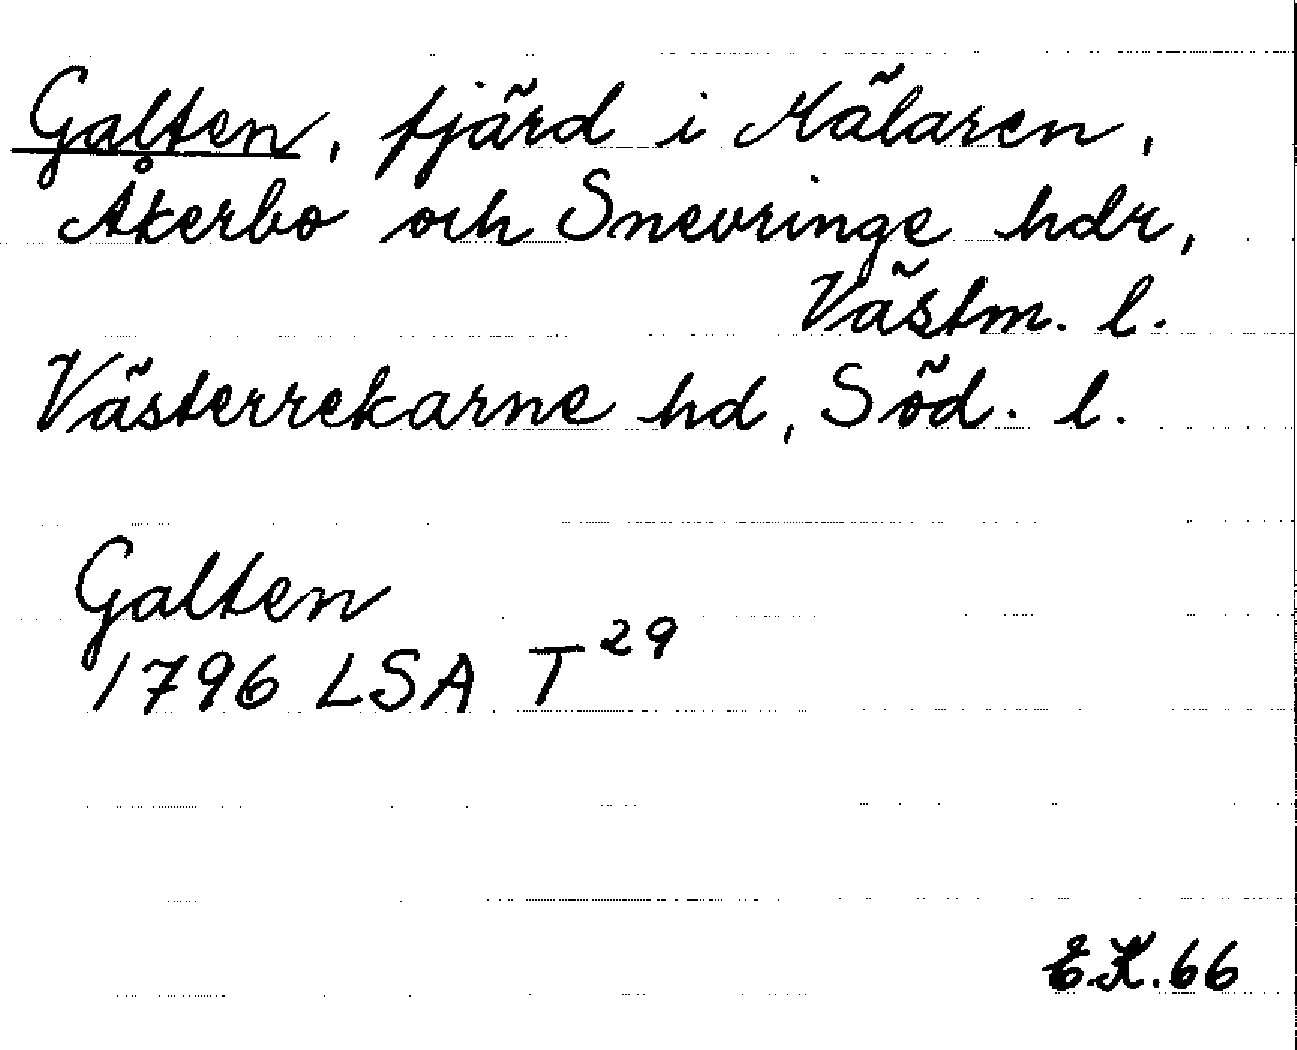 Galten, fjärd i Mälaren,
Åkerbo och Snevringe hdr,
Västm. l.
Västerrekarne hd, Söd. l.
Galten
1796 LSA T 29
E.K. 66